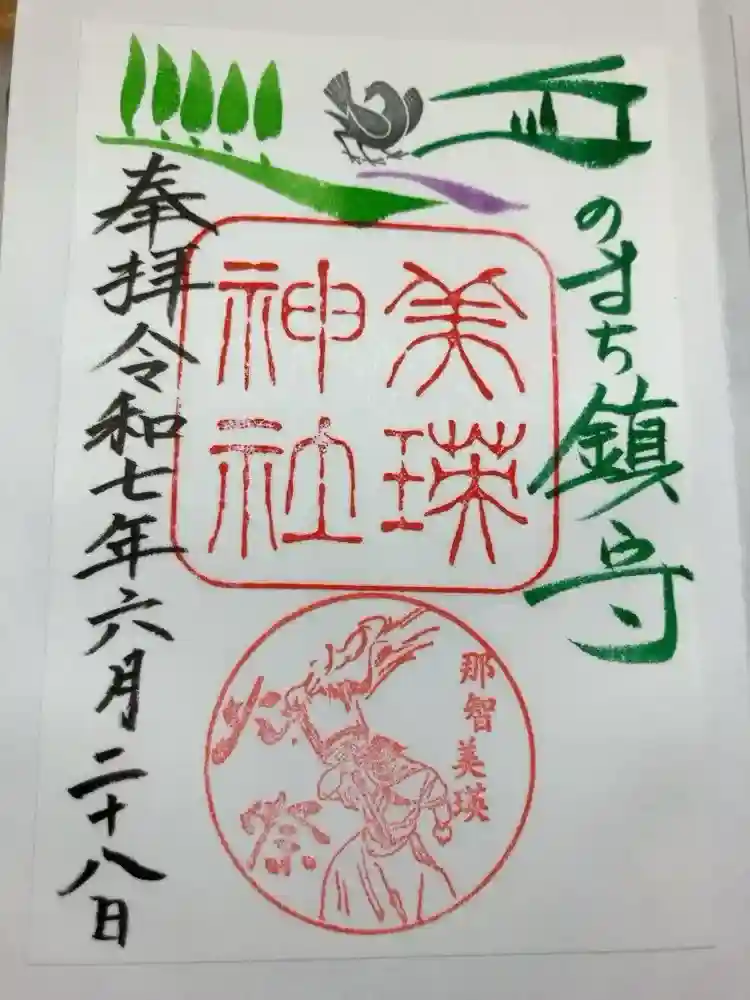 丘のまち鎮守
美瑛
神社
那智美瑛
火祭
奉拝令和七年六月二十八日